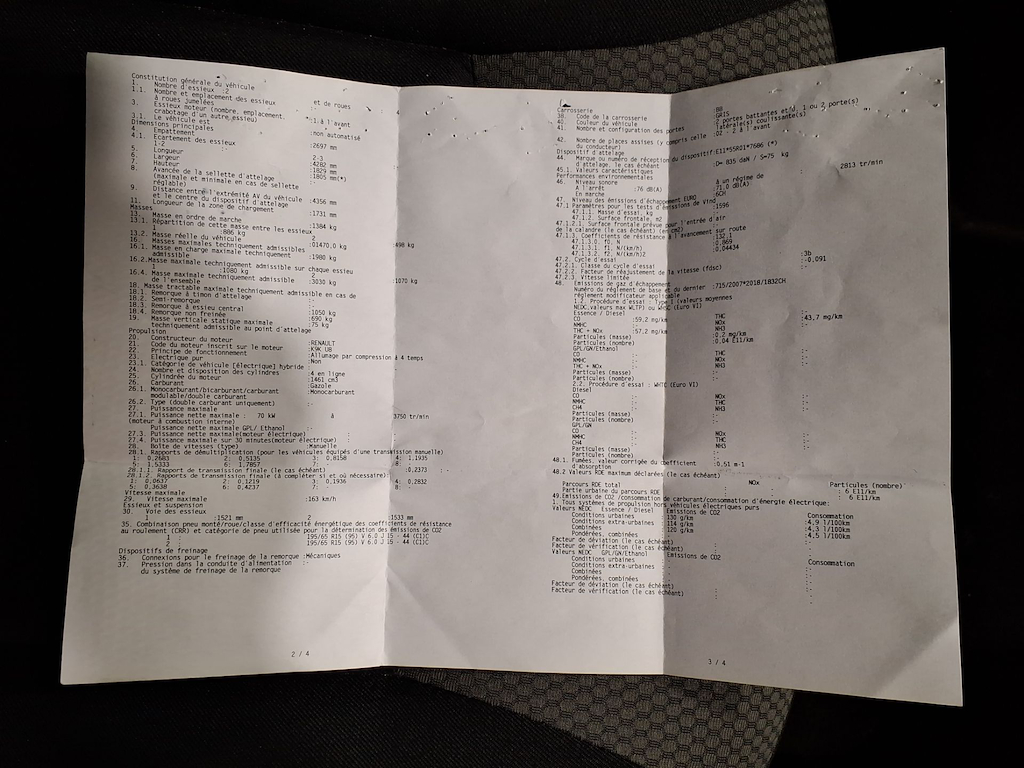 Constitution générale du véhicule
1. Nombre d'essieux :2 et de roues
1.1. Nombre et emplacement des essieux
à roues jumelées
3. Essieux moteur (nombre, emplacement, :1.à l'avant
crabotage d'un autre essieu)
3.1. Le véhicule est :non automatisé
Dimensions principales
4. Empattement :2697 mm
4.1. Ecartement des essieux
1-2 :- 2-3 :-
5. Longueur :4282 mm
6. Largeur :1829 mm
7. Hauteur :1805 mm(*)
8. Avancée de la sellette d'attelage :-
(maximale et minimale en cas de sellette
réglable)
9. Distance entre l'extrémité AV du véhicule :4356 mm
et le centre du dispositif d'attelage
11. Longueur de la zone de chargement :1731 mm
Masses
13. Masse en ordre de marche :1384 kg
13.1. Répartition de cette masse entre les essieux
1 :886 kg 2 :498 kg
13.2. Masse réelle du véhicule :01470,0 kg
16. Masses maximales techniquement admissibles
16.1. Masse en charge maximale techniquement :1980 kg
admissible
16.2.Masse maximale techniquement admissible sur chaque essieu
1 :1080 kg 2 :1070 kg
16.4. Masse maximale techniquement admissible :3030 kg
de l'ensemble
18. Masse tractable maximale techniquement admissible en cas de
18.1. Remorque à timon d'attelage :-
18.2. Semi-remorque :-
18.3. Remorque à essieu central :1050 kg
18.4. Remorque non freinée :690 kg
19. Masse verticale statique maximale :75 kg
techniquement admissible au point d'attelage
Propulsion
20. Constructeur du moteur :RENAULT
21. Code du moteur inscrit sur le moteur :K9K U8
22. Principe de fonctionnement :Allumage par compression à 4 temps
23. Electrique pur :Non
23.1. Catégorie de véhicule [électrique] hybride :-
24. Nombre et disposition des cylindres :4 en ligne
25. Cylindrée du moteur :1461 cm3
26. Carburant :Gazole
26.1. Monocarburant/bicarburant/carburant :Monocarburant
modulable/double carburant
26.2. Type (double carburant uniquement) :-
27. Puissance maximale
27.1. Puissance nette maximale : 70 kW à 3750 tr/min
(moteur à combustion interne)
Puissance nette maximale GPL/ Ethanol :-
27.3. Puissance nette maximale(moteur électrique) :
27.4. Puissance maximale sur 30 minutes(moteur électrique) :
28. Boîte de vitesses (type) :Manuelle
28.1. Rapports de démultiplication (pour les véhicules équipés d'une transmission manuelle)
1: 0,2683 2: 0,5135 3: 0,8158 4: 1,1935
5: 1,5333 6: 1,7857 7: - 8:
28.1.1. Rapport de transmission finale (le cas échéant) :0,2373 : -
28.1.2. Rapports de transmission finale (à compléter si et où nécessaire):
1: 0,0637 2: 0,1219 3: 0,1936 4: 0,2832
5: 0,3638 6: 0,4237 7: - 8:
Vitesse maximale
29. Vitesse maximale :163 km/h
Essieux et suspension
30. Voie des essieux
1 :1521 mm 2 :1533 mm
35. Combinaison pneu monté/roue/classe d'efficacité énergétique des coefficients de résistance
au roulement (CRR) et catégorie de pneu utilisée pour la détermination des émissions de CO2
1 : 195/65 R15 (95) V 6.0 J 15 - 44 (C1)C
2 : 195/65 R15 (95) V 6.0 J 15 - 44 (C1)C
Dispositifs de freinage
36. Connexions pour le freinage de la remorque :Mécaniques
37. Pression dans la conduite d'alimentation :-
du système de freinage de la remorque
2 / 4
Carrosserie
38. Code de la carrosserie :BB
40. Couleur du véhicule :GRIS
41. Nombre et configuration des portes :2 portes battantes et/d. 1 ou 2 porte(s)
latérale(s) coulissante(s)
42. Nombre de places assises (y compris celle :02 - 2 à l'avant
du conducteur)
Dispositif d'attelage
44. Marque ou numéro de réception du dispositif:E11*55R01*7686 (*)
d'attelage, le cas échéant
45.1. Valeurs caractéristiques :D= 835 daN / S=75 kg
Performances environnementales
46. Niveau sonore
A l'arrêt :76 dB(A) à un régime de 2813 tr/min
En marche :71.0 dB(A)
47. Niveau des émissions d'échappement EURO :6CH
47.1 Paramètres pour les tests d'émissions de Vind
47.1.1. Masse d'essai, kg :1596
47.1.2. Surface frontale, m2
47.1.2.1. Surface frontale prévue pour l'entrée d'air
de la calandre (le cas échéant) (en cm2)
47.1.3. Coefficients de résistance à l'avancement sur route
47.1.3.0. f0, N :132,1
47.1.3.1. f1, N/(km/h) :0.869
47.1.3.2. f2, N/(km/h)2 :0.04434
47.2. Cycle d'essai
47.2.1. Classe du cycle d'essai :3b
47.2.2. Facteur de réajustement de la vitesse (fdsc) :-0,091
47.2.3. Vitesse limitée :-
48. Emissions de gaz d'échappement
Numéro du règlement de base et du dernier :715/2007*2018/1832CH
règlement modificateur applicable
1.2. Procédure d'essai : Type I (valeurs moyennes
NEDC,valeurs max WLTP) ou WHSC (Euro VI)
Essence / Diesel
CO :59.2 mg/km THC :-
NMHC :- NOx :43,7 mg/km
THC + NOx :57.2 mg/km NH3 :-
Particules (masse) :0.2 mg/km
Particules (nombre) :0.04 E11/km
GPL/GN/Ethanol
CO :- THC :-
NMHC :- NOx :-
THC + NOx :- NH3 :-
Particules (masse) :-
Particules (nombre) :-
2.2. Procédure d'essai : WHTC (Euro VI)
Diesel
CO :- NOx :-
NMHC :- THC :-
CH4 :- NH3 :-
Particules (masse) :-
Particules (nombre) :-
GPL/GN
CO :- NOx :-
NMHC :- THC :-
CH4 :- NH3 :-
Particules (masse) :-
Particules (nombre) :-
48.1. Fumées, valeur corrigée du coefficient :0,51 m-1
d'absorption
48.2 Valeurs RDE maximum déclarées (le cas échéant)
NOx Particules (nombre)
Parcours RDE total : : 6 E11/km
Partie urbaine du parcours RDE : : 6 E11/km
49.Emissions de CO2 /consommation de carburant/consommation d'énergie électrique:
1. Tous systèmes de propulsion hors véhicules électriques purs
Valeurs NEDC Essence / Diesel Emissions de CO2 Consommation
Conditions urbaines :130 g/km :4,9 l/100km
Conditions extra-urbaines :114 g/km :4,3 l/100km
Combinées :120 g/km :4,5 l/100km
Pondérées, combinées :- :-
Facteur de déviation (le cas échéant) :
Facteur de vérification (le cas échéant) :
Valeurs NEDC GPL/GN/Ethanol Emissions de CO2 Consommation
Conditions urbaines :- :-
Conditions extra-urbaines :- :-
Combinées :- :-
Pondérées, combinées :- :-
Facteur de déviation (le cas échéant) :
Facteur de vérification (le cas échéant) :
3 / 4